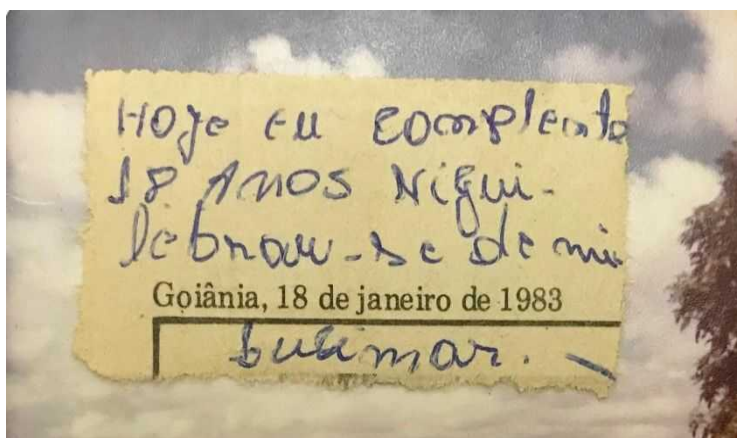 Hoje eu complento
18 Anos Nigui-
lebrou-se de mi
Goiânia, 18 de janeiro de 1983